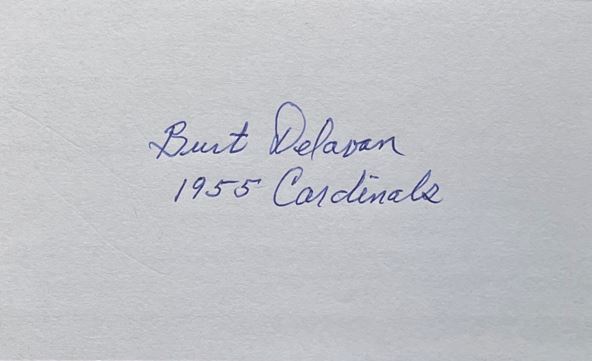 Burt Delavan
1955 Cardinals